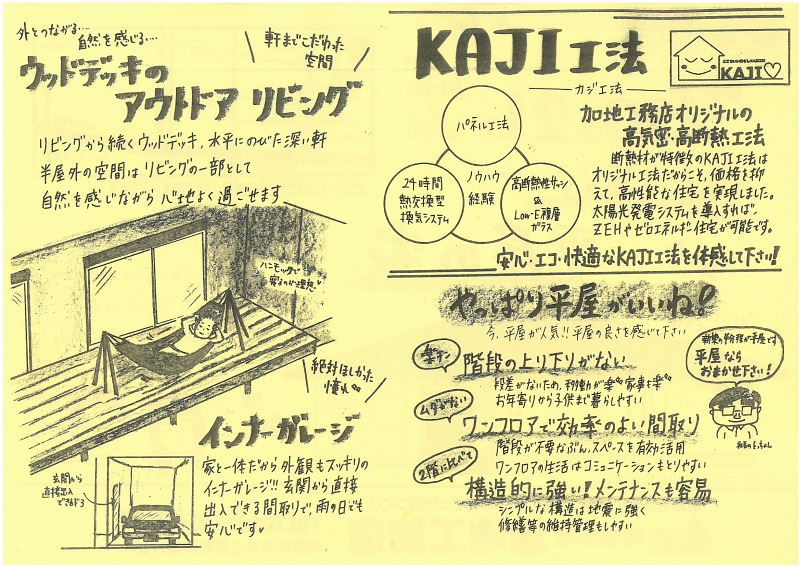 外とのながる…
自然を感じる…
ウッドデッキの
アウトドア リビング
軒までこだわった
空間
リビングから続くウッドデッキ、水平にのびた深い軒
半屋外の空間はリビングの一部として
自然を感じながら 心地よく過ごせます
ハンモックで
寝るのが理想♡
絶対ほしかった
憧れ
インナーガレージ
玄関から
直接出入
できるドア
家と一体だから外観もスッキリの
インナーガレージ!!玄関から直接
出入できる間取りで、雨の日でも
安心です♥
KAJI工法
カジ工法
KAJI♡
パネル工法
24時間
熱交換型
換気システム
ノウハウ
経験
高断熱性サッシ
&
Low-E複層
ガラス
加地工務店オリジナルの
高気密・高断熱工法
断熱材が特徴のKAJI工法は
オリジナル工法だからこそ、価格を抑
えて、高性能な住宅を実現しました。
太陽光発電システムを導入すれば、
ZEHやゼロエネルギー住宅が可能です。
安心・エコ・快適なKAJI工法を体感して下さい!
やっぱり平屋がいいね!
今、平屋が人気!!平屋の良さを感じて下さい
楽チン
階段の上り下りがない
段差がないため、移動が楽 家事も楽
お年寄りから子供まで暮らしやすい
ムダがない
ワンフロアで効率のよい間取り
階段が不要なぶん、スペースを有効活用
ワンフロアの生活はコミュニケーションもとりやすい
2階に比べて
構造的に強い!メンテナンスも容易
シンプルな構造は地震に強く
修繕等の維持管理もしやすい
平屋なら
おまかせ下さい!